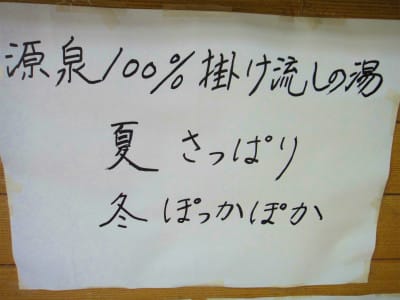 源泉100%掛け流しの湯
夏 さっぱり
冬 ぽっかぽか